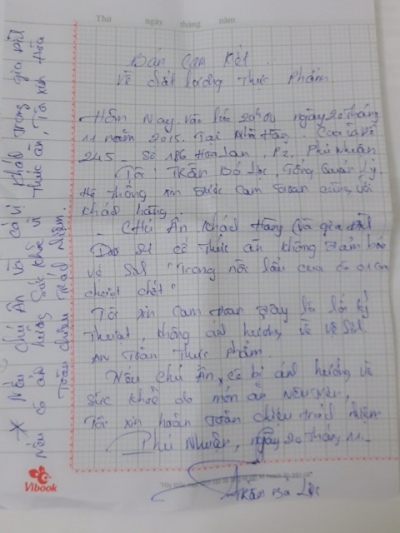 Thứ ngày tháng năm
Bản Cam Kết
Về chất lượng Thực Phẩm.
Hôm Nay vào lúc 20h00 ngày 20 tháng
11 năm 2015. Tại Nhà Hàng
245 - Số Hoa Lan, P2, Phú Nhuận
Tôi: Trần Bá Lộc, Tổng Quản Lý
Hệ thống xin được cam đoan cùng với
khách hàng.
- Chú Ân khách Hàng (và gia đình)
Do sự cố thức ăn không đảm bảo
về "Trong nồi lẩu của có con
chuột chết"
Tôi xin cam đoan đây là lỗi kỹ
thuật không ảnh hưởng về
An toàn Thực Phẩm.
Nếu chú Ân, có bị ảnh hưởng về
sức khoẻ do món ăn nêu trên,
Tôi xin hoàn toàn chịu trách nhiệm
Phú Nhuận, ngày 20 tháng 11
Trần Bá Lộc
* Nếu chú Ân và các vị khách trong gia đình
Nếu có ảnh hưởng sức khoẻ vì thức ăn, Tôi xin hứa
Toàn chịu trách nhiệm.
Vibook